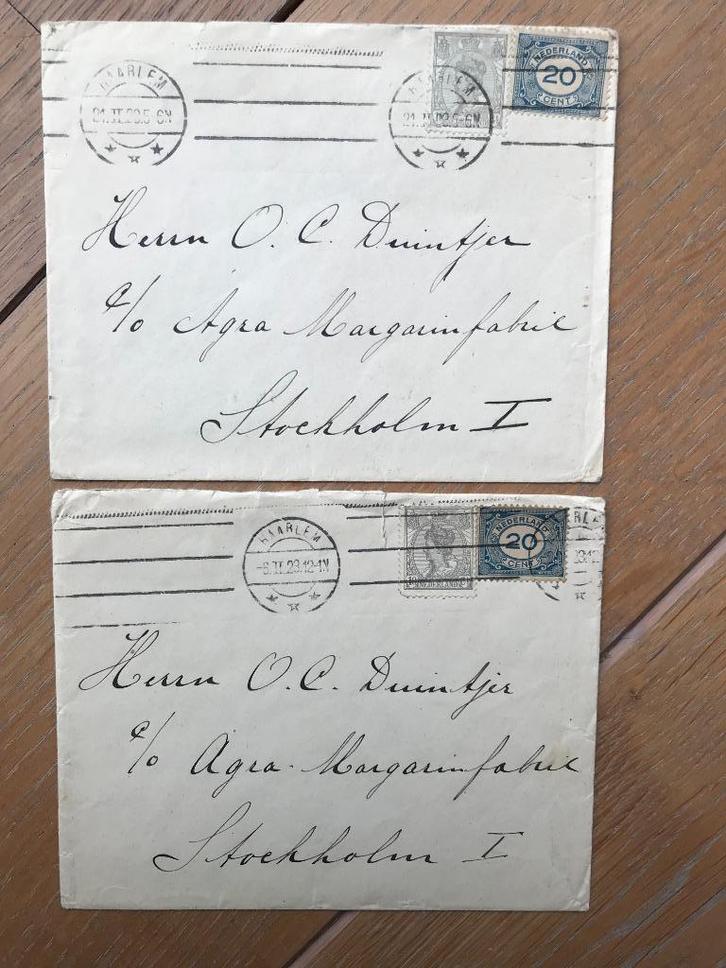 HAARLEM
21.II.23.5-6N
HAARLEM
21.II.23.5-6N
NEDERLAND
20
CENT
Herrn O. C. Duintjer
c/o Agra Margarinfabrik
Stockholm I
HAARLEM
-6.II.23.12-1N
NEDERLAND
20
CENT
HAARLE
Herrn O. C. Duintjer
c/o Agra-Margarinfabrik
Stockholm I